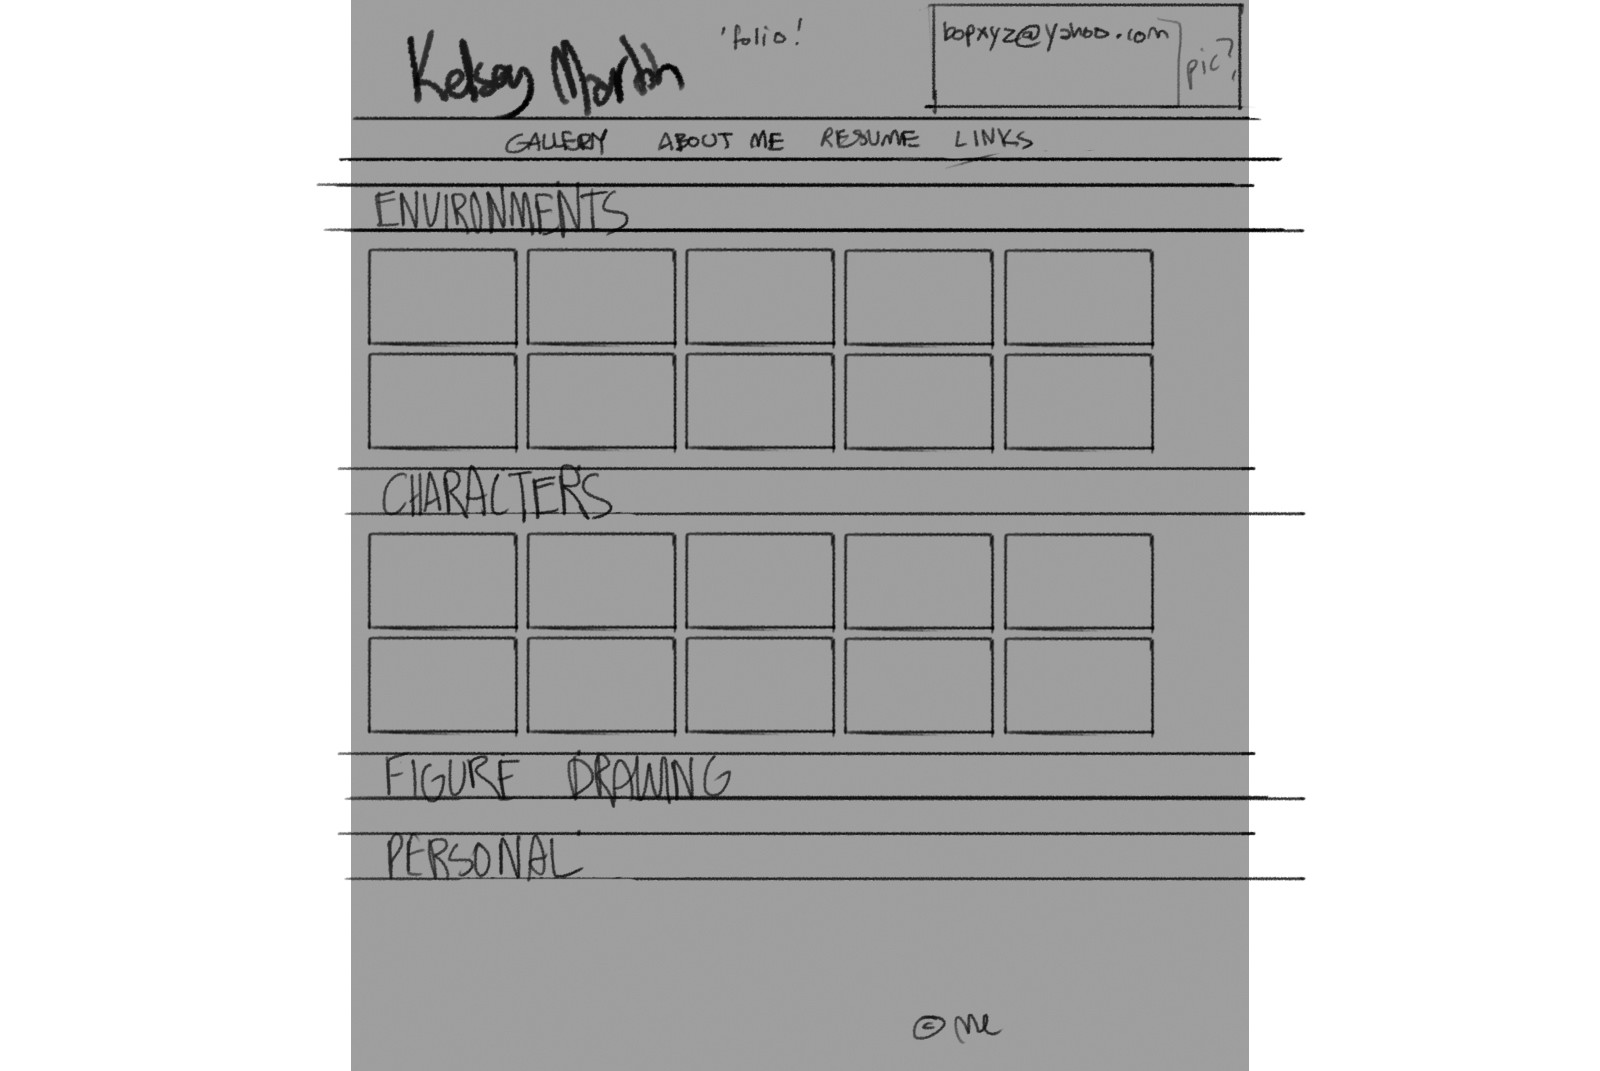 Kelsey Martin
'folio!
bopxyz@yahoo.com
pic?
GALLERY ABOUT ME RESUME LINKS
ENVIRONMENTS
CHARACTERS
FIGURE DRAWING
PERSONAL
© me